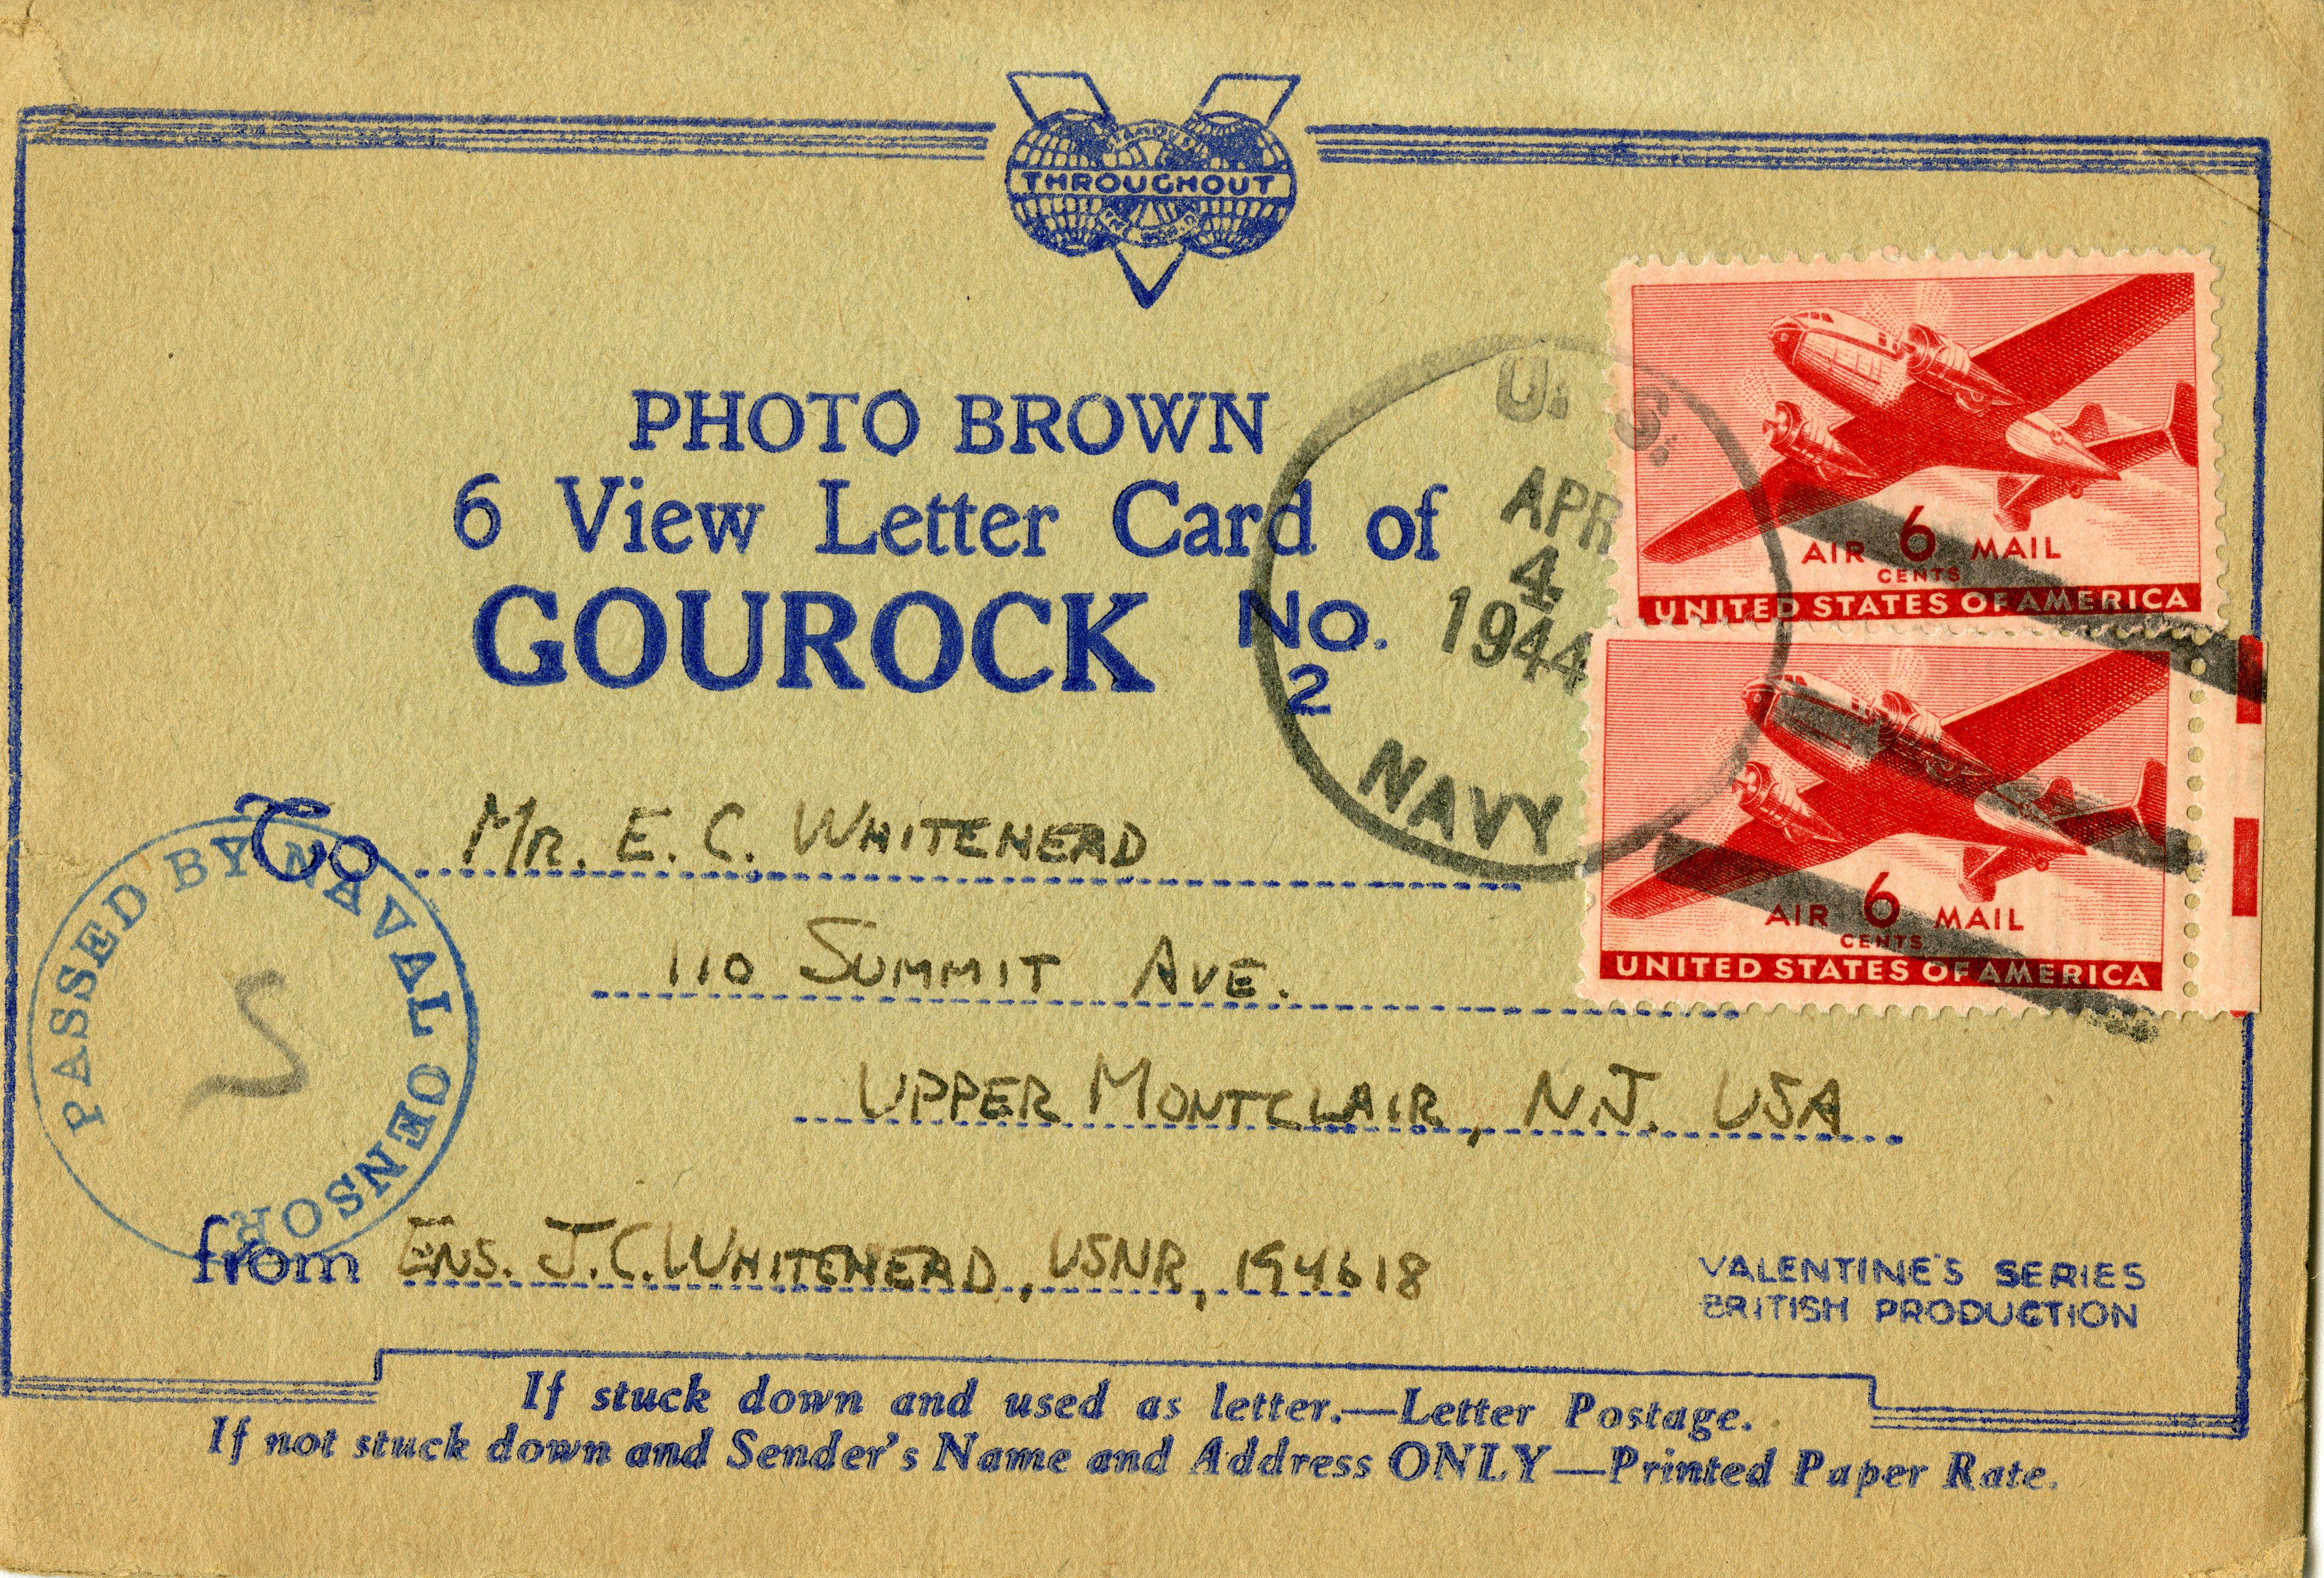 FAMOUS
THROUGHOUT
THE WORLD
PHOTO BROWN
6 View Letter Card of
GOUROCK No.
2
U. S.
APR
4
1944
NAVY
AIR 6 MAIL
CENTS
UNITED STATES OF AMERICA
AIR 6 MAIL
CENTS
UNITED STATES OF AMERICA
To MR. E. C. WHITEHEAD
110 SUMMIT AVE.
UPPER MONTCLAIR, N.J. USA
PASSED BY NAVAL CENSOR
from ENS. J.C. WHITEHEAD, USNR, 194618
VALENTINE'S SERIES
BRITISH PRODUCTION
If stuck down and used as letter.—Letter Postage.
If not stuck down and Sender's Name and Address ONLY—Printed Paper Rate.